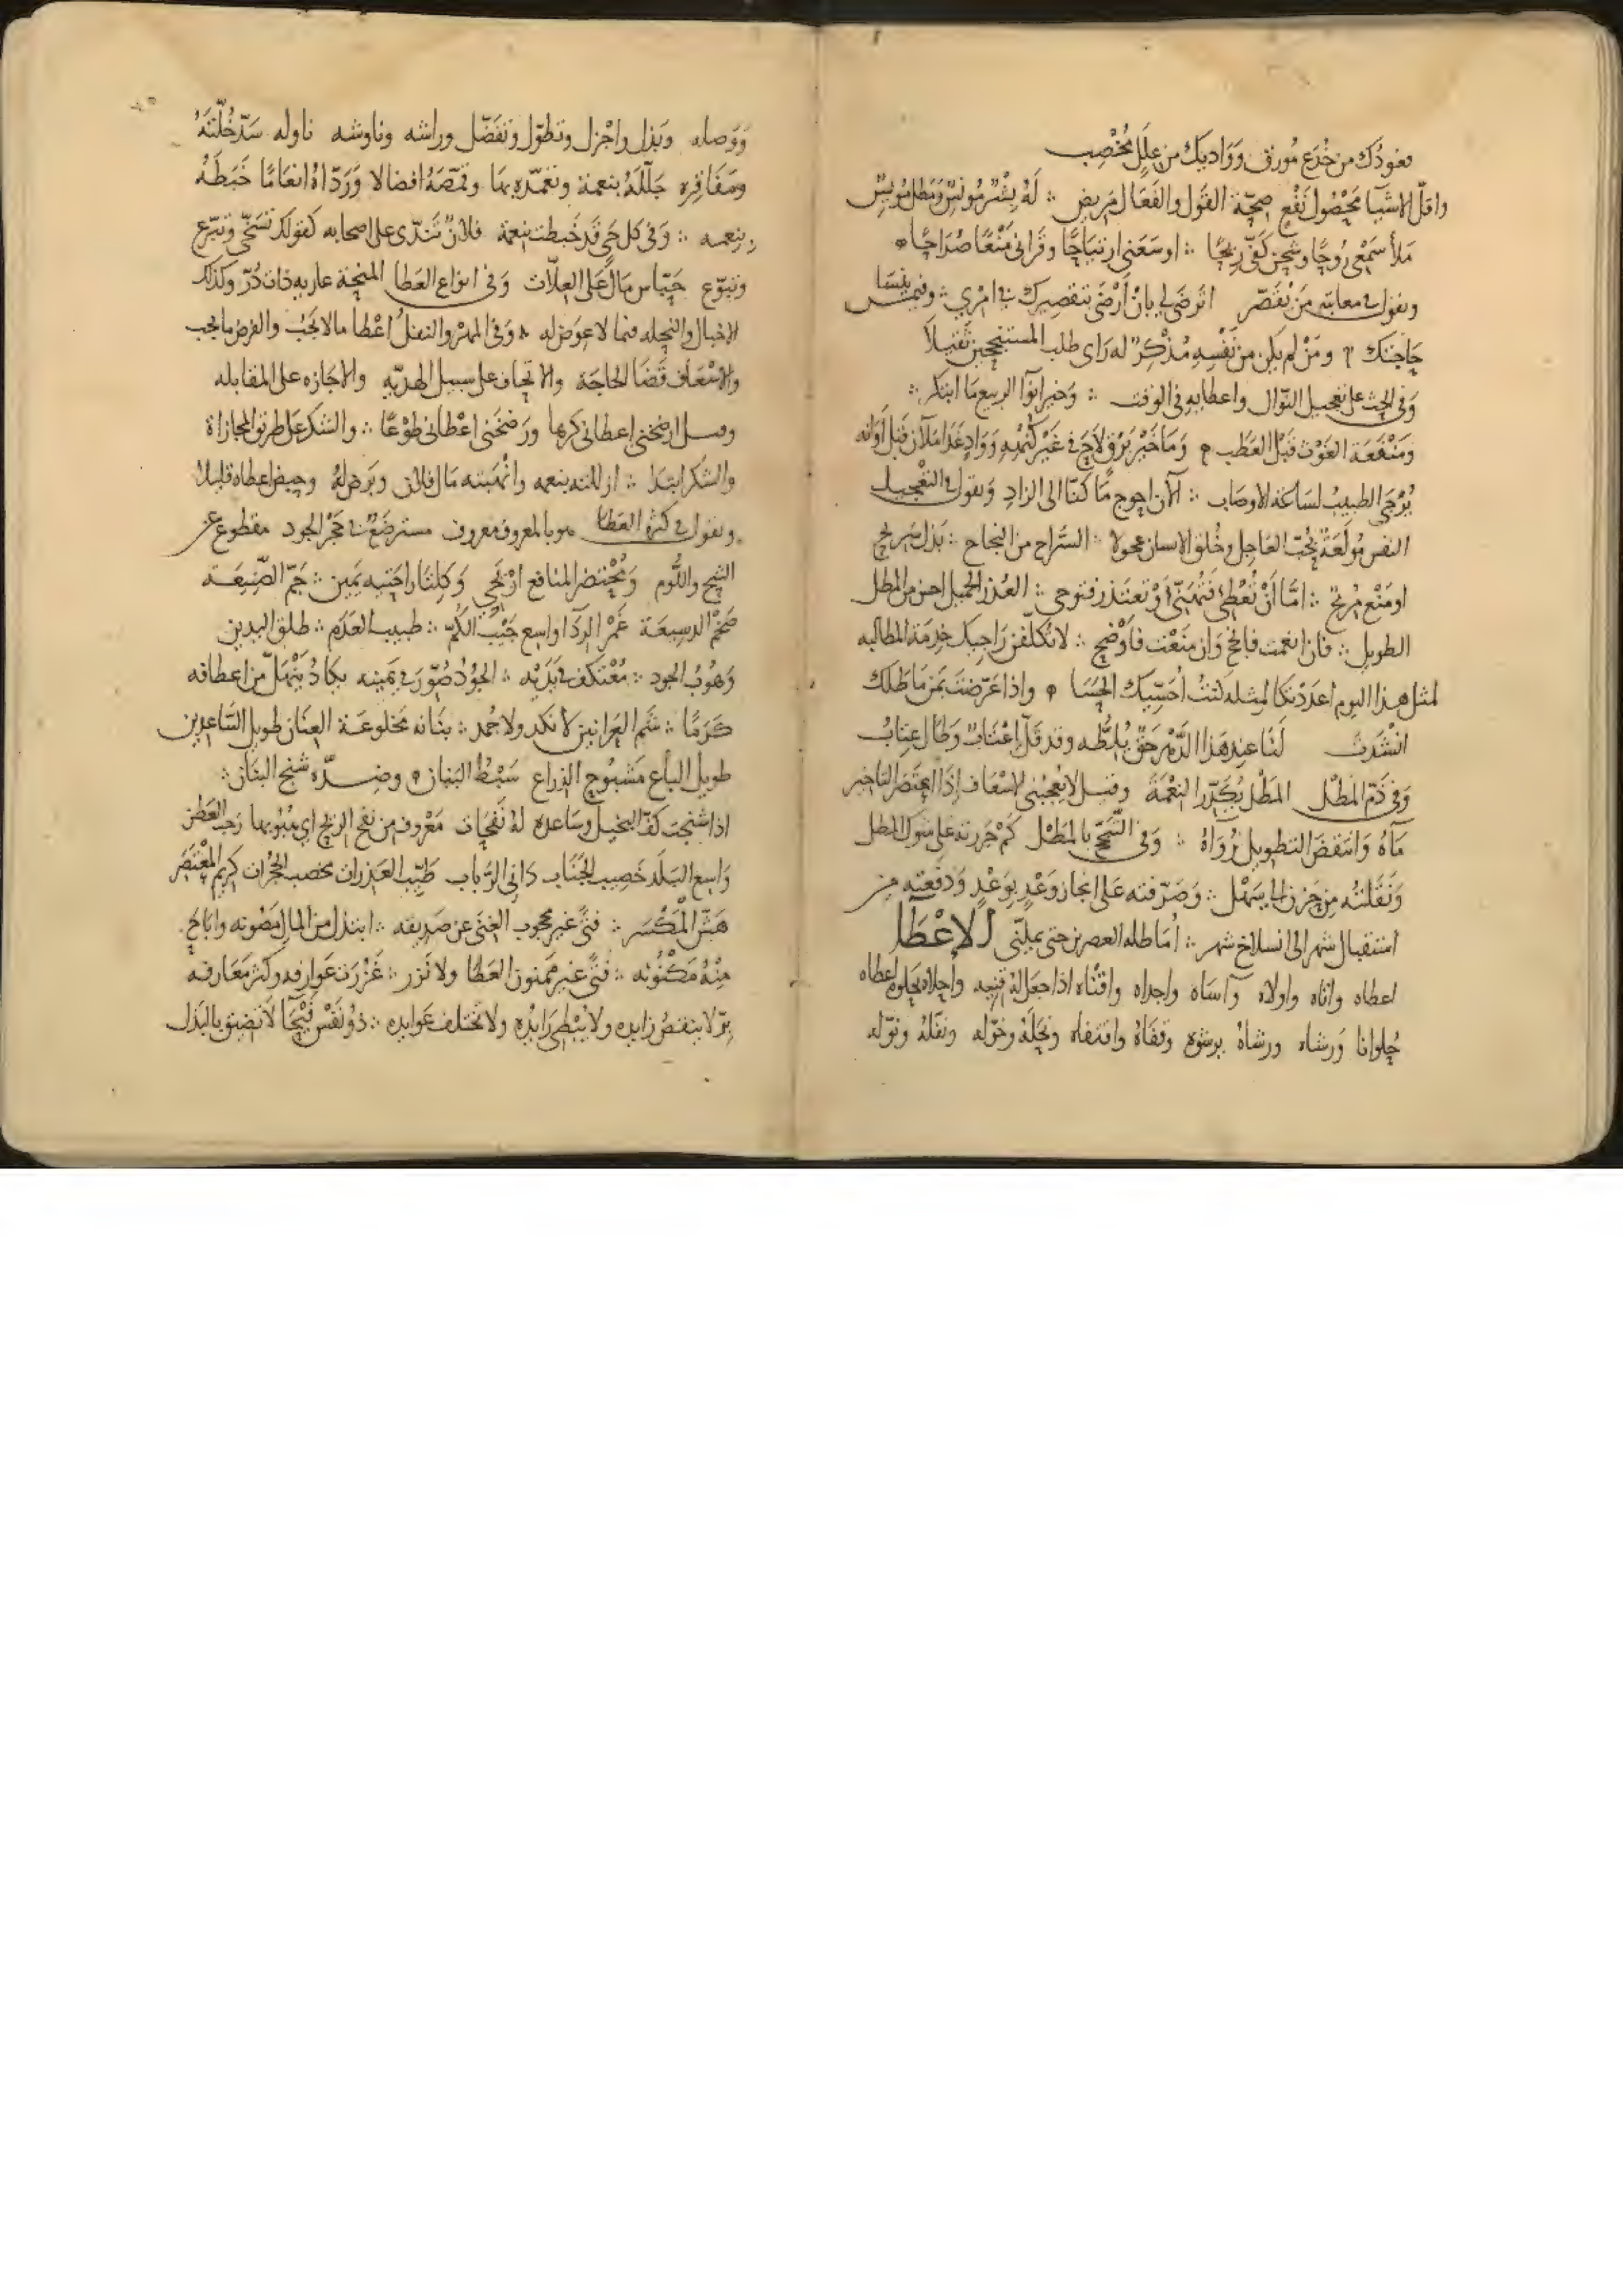 فعودك من خدع مورق وواديك من علل مخصب
واقل الاشيآ محصول نفع صحة القول والفعال مريض ∴ له بشر مونس ومطل مويس
ملأ سمعى روحًا وشحن كفى ريحًا ∴ اوسعنى ارتياحًا وقرانى منعًا صراحًا
ويقول فى معاتبة من يقصر اترضى لى بان أرضى بتقصيرك فى امرى ∴ وفيمن ينسا
حاجتك ومن لم يكن من نفسه مذكر له راى طلب المستنجحين ثقيلا
وفى الحث على تعجيل النوال واعطايه فى الوقت ∴ وخير انوآ الربيع ما ابتكر ∴
ومنفعة الغوث قبل العطب وما خير برق لاح فى غير وواد غدا ملآن قبل اوانه
يرجى الطبيب لساعة الاوصاب ∴ الآن احوج ما كنا الى الزاد ويقول فى التعجيل
النفس مولعة بحب العاجل وخلق الانسان عجولا ∴ السراح من النجاح ∴ بذل سريح
او منع مريح ∴ امّا أن تعطى او تعتذر فتوحى ∴ العذر الجميل احسن من المطل
الطويل ∴ فان انعمت فانجح وان منعت فاوضح ∴ لا تكلفن راجيك خدمة المطالبه
لمثل هذا اليوم اعددتكا لمثله كنت أحسيك الحسا واذا عرّضت بمن ماطلك
انشدت لنا عند هذا الدهر حق يلطه وقد قل إعتاب وطال عتاب
وفى ذم المطل المطل يكدّر النعمة وقيل لا يعجبنى الاسعاف إذا اعتصر التاخير
مآه وانتقض التطويل رواه ∴ وفى الشح بالمطل كم جررته على شوك المطل
ونقلته من حزن الى سهل ∴ وصرفته على انجاز وعد بوعد ودفعته من
استقبال شهر الى انسلاخ شهر ∴ أماطله العصرين حتى يملنى الإعطآ
اعطاه واتاه واولاه وآساه واجداه واقناه اذا جعل له قنيه وحلاه يحلوه اعطاه
حلوانا ورشاه ورشاه برشوة وقفاه واقتفاه ونحله وخوّله ونفله ونوّله
ووصله وبذل واجزل وتطوّل وتفضّل وراشه وناوشه ناوله سدّ خلّته
ومفاقره جلله بنعمة وتغمّده بها وقمّصه افضالا وردّاه انعامًا خبطه
بنعمه ∴ وفى كل حى قد خبطت بنعمة فلان تندّى على اصحابه كقولك تسخّى وتبرّع
وتبوّع حبّاس مال على العلات وفى انواع العطا المنحة عاريه ذات درّ وكذلك
الاخبال والنحله فيما لا عوض له وفى المهر والنفل اعطا ما لا يجب والفرض ما يجب
والاسعاف قضا الحاجة والاتحاف على سبيل الهديّه والاجازه على المقابله
وقيل ارضخنى إعطانى كرها ورضخنى اعطانى طوعًا ∴ والشكر على طريق المجازاة
والشكر ابتدا ∴ ازللته بنعمه وانهبته مال فلان وبرض له وحبض اعطاه قليلا
ويقول فى كثرة العطا هو بالمعروف معروف مسترضع فى حجر الجود مقطوع عن
الشح واللوم ومحتضر المنافع اريحى وكلتا راحتيه يمين ∴ جمّ الصنيعة
ضخم الدسيعة غمر الردا واسع جيب الكمّ ∴ طبيب العدم ∴ طلق اليدين
وهوب الجود ∴ معتكف فى يديه ∴ الجود صُوّر فى يمينه يكاد ينهل من اعطافه
كرمًا ∴ شم العرانين لا نكد ولا جمد ∴ بنانه مخلوعة العنان طويل الساعدين
طويل الباع مشبوح الذراع سبط البنان وضده شنج البنان ∴
اذا شنجت كف البخيل وساعده له نفحات معروف من نفح الريح اى هبوبها رحب العطن
واسع البلد خصيب الجناب دانى الرباب طيب العذرات مخصب الحجرات كريم المعتصر
هشّ المكسر ∴ فتى غير محجوب الغنى عن صديقه ∴ ابتذل من المال مصونه واباح
منه مكنونه ∴ فتى غير ممنون العطا ولا نزر ∴ غزرت عوارفه وكثر معارفه
برّ لا ينقص زايده ولا يبطى رايده ولا تختلف عوايده ∴ ذو نفس فيحآ لا تضيق بالبذل